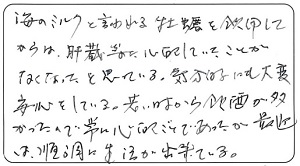 海のミルクと言われる牡蠣を飲用して
からは、肝臓が心配していたことが
なくなったと思っている。気分的にも大変
安心をしている。若い時から飲酒が多
かったので常に心配ごとであったが最近
は順調に生活が出来ている。